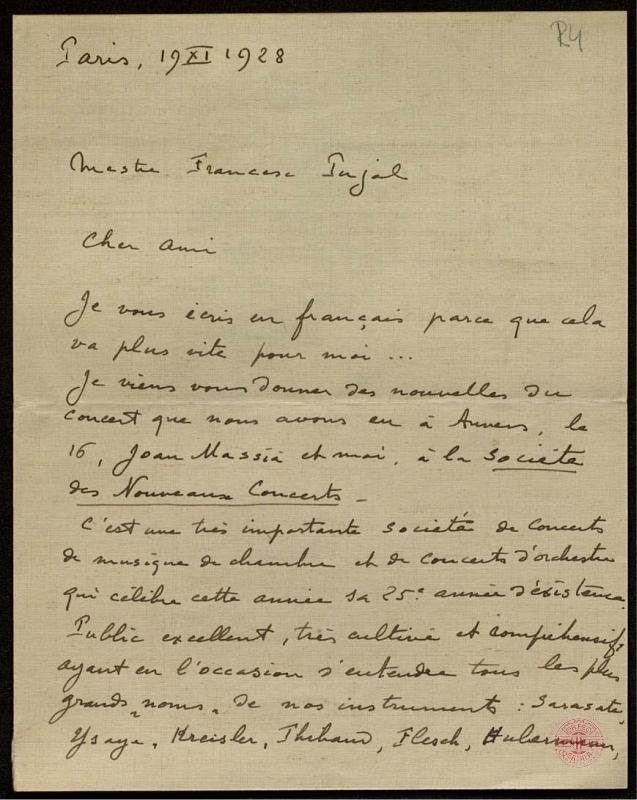 R4
Paris, 19 XI 1928
Mestre Francesc Pujol
Cher ami
Je vous écris en français parce que cela
va plus vite pour moi ...
Je viens vous donner des nouvelles du
concert que nous avons eu à Anvers, le
16, Joan Massià et moi, à la Société
des Nouveaux Concerts -
C'est une très importante société de concerts
de musique de chambre et de concerts d'orchestre
qui célèbre cette année sa 25e année d'éxistence.
Public excellent, très cultivé et compréhensif,
ayant eu l'occasion d'entendre tous les plus
grands "noms" de nos instruments : Sarasate,
Ysaye, Kreisler, Thibaud, Flesch, Hubermann,